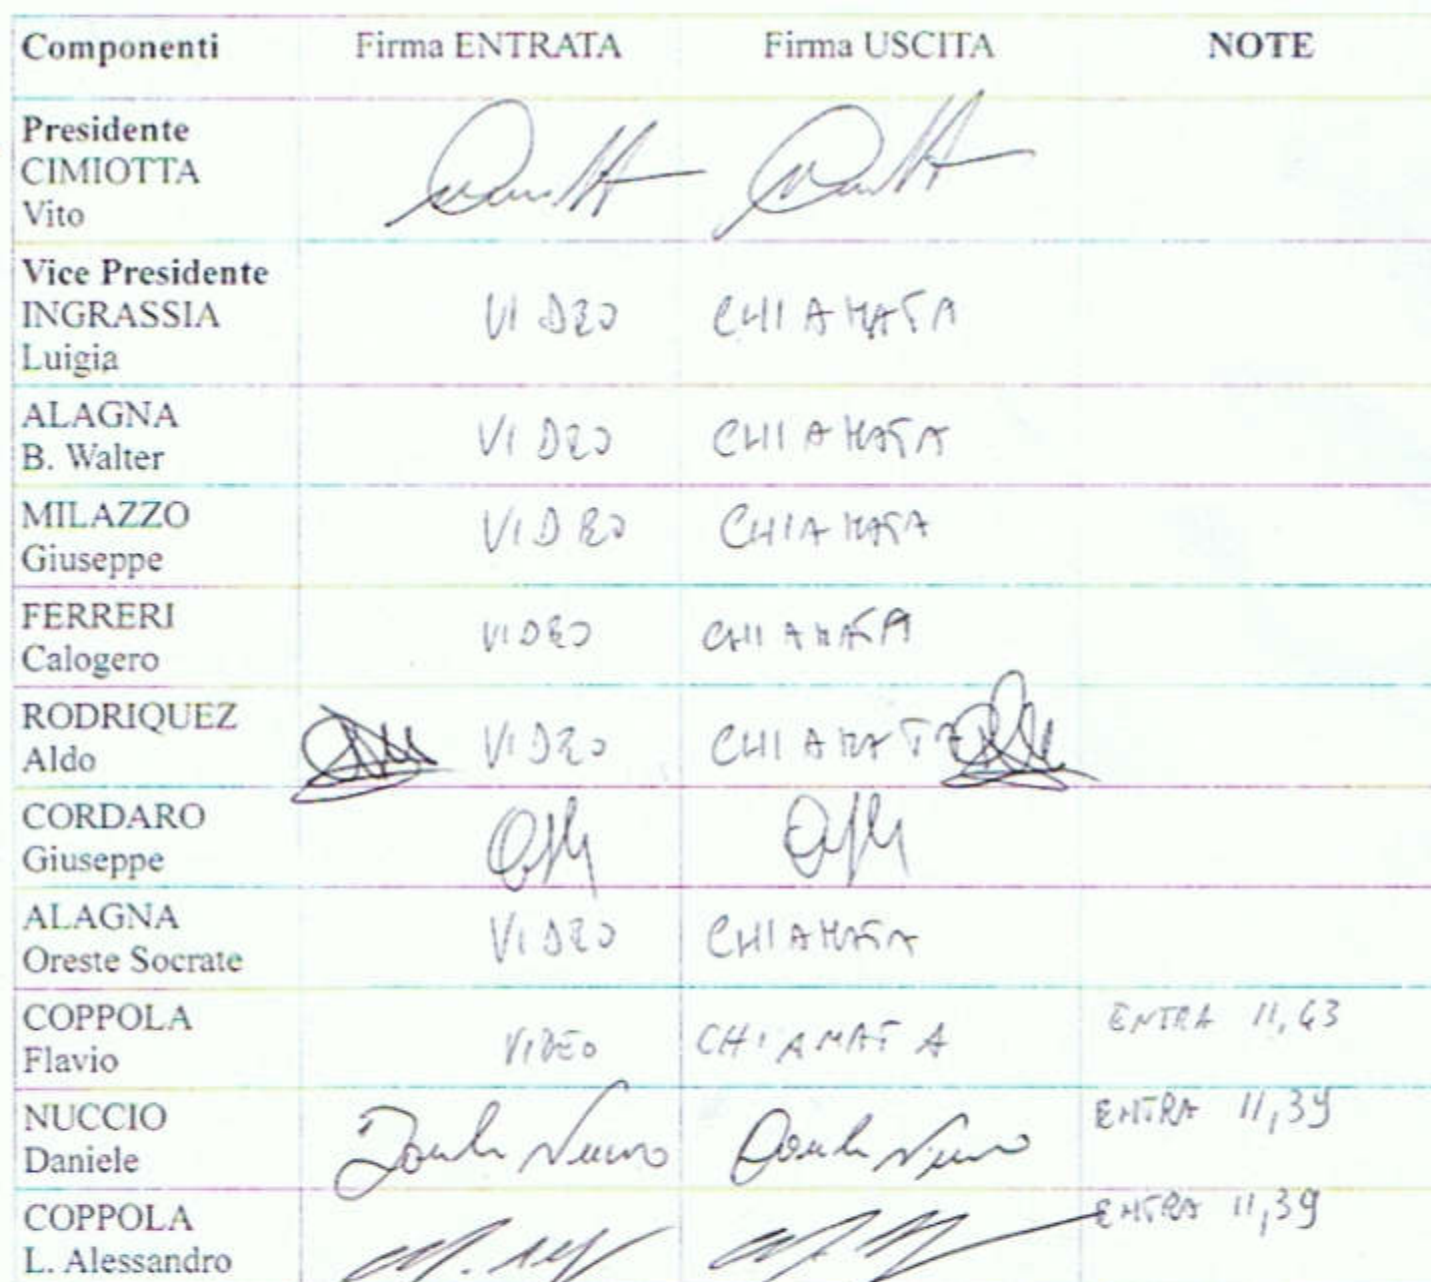 Componenti Firma ENTRATA Firma USCITA NOTE
Presidente
CIMIOTTA
Vito
Vice Presidente
INGRASSIA
Luigia
VIDEO CHIAMATA
ALAGNA
B. Walter
VIDEO CHIAMATA
MILAZZO
Giuseppe
VIDEO CHIAMATA
FERRERI
Calogero
VIDEO CHIAMATA
RODRIQUEZ
Aldo
VIDEO CHIAMATA
CORDARO
Giuseppe
ALAGNA
Oreste Socrate
VIDEO CHIAMATA
COPPOLA
Flavio
VIDEO CHIAMATA ENTRA 11,43
NUCCIO
Daniele
Daniele Nuccio Daniele Nuccio ENTRA 11,39
COPPOLA
L. Alessandro
ENTRA 11,39